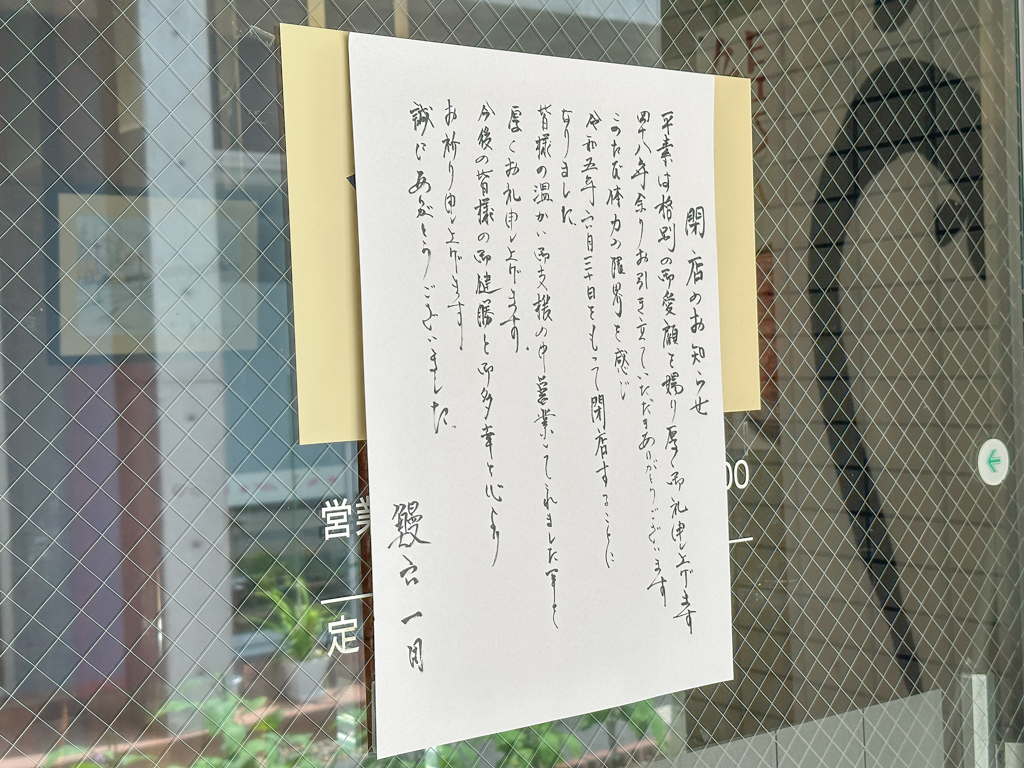 閉店のお知らせ
平素は格別の御愛顧を賜り厚く御礼申し上げます
四十八年余りお引き立ていただきありがとうございます
このたび体力の限界を感じ
令和五年六月三十日をもって閉店することに
なりました
皆様の温かい御支援の中営業してこれました事を
厚くお礼申し上げます。
今後の皆様の御健勝と御多幸を心より
お祈り申し上げます
誠にありがとうございました。
鰻六一同
営業
00
定